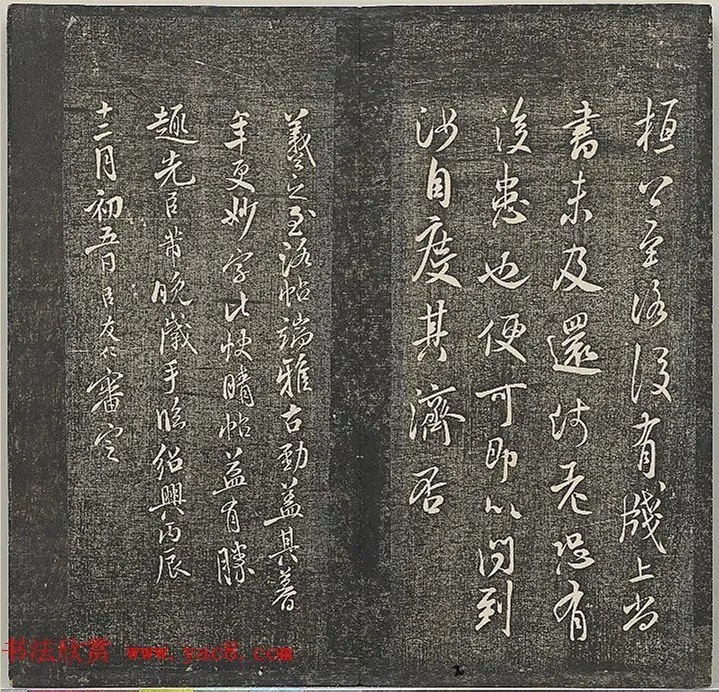 桓公至洛没有牋上尚
書未及還何老恐有
後患也便可即以問到
汝自度其濟否
羲之至洛帖端雅古勁蓋其暮
年更妙字比快晴帖益有勝
趣先臣芾晚歲手臨紹興丙辰
十二月初五日臣友仁審定
书法欣赏 www.yac8.com